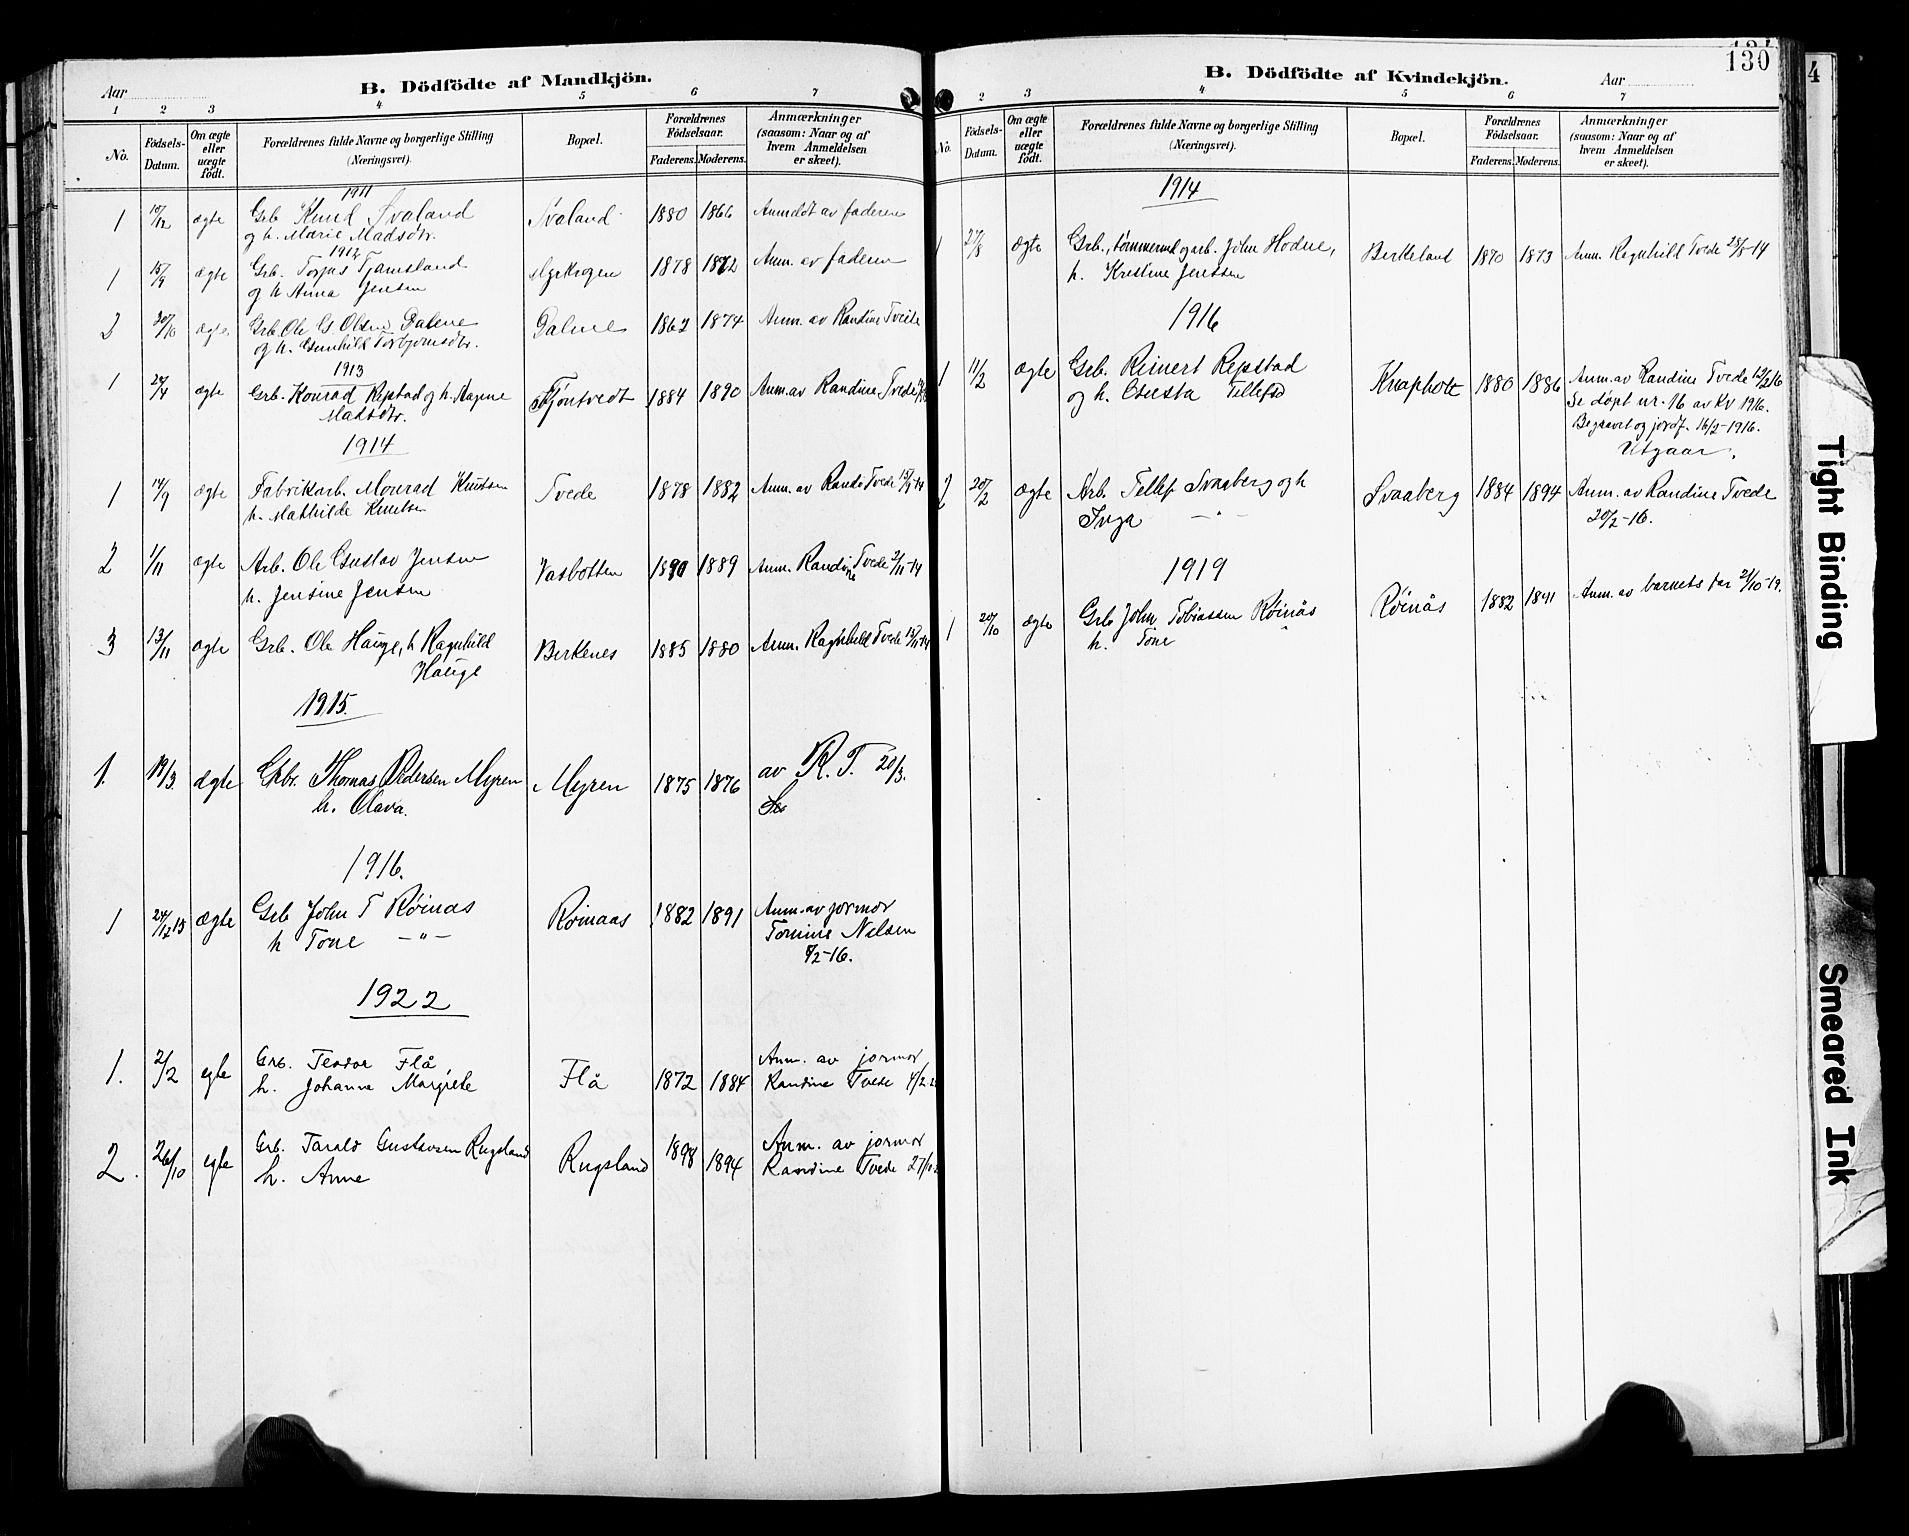 B. Dödfödte af Mandkjön.
Aar
1 2 3 4 5 6 7
No.
Födsels-Datum.
Om ægte eller uægte födt.
Forældrenes fulde Navne og borgerlige Stilling (Næringsvei).
Bopæl.
Forældrenes Födselsaar.
Faderens. Moderens.
Anmærkninger (saasom: Naar og af hvem Anmeldelsen er skeet).
1911
1 10/12 ægte Grb. Knud Svaland Svaland 1880 1866 Anmeldt av faderen
og h. Marie Madsdtr.
1912
1 15/9 ægte Grb. Torjus Tjamsland 1878 1872 Anm. av faderen
og h. Anna Jensen
2 20/10 ægte Grb. Ole G. Olsen Dalene Dalene 1862 1874 Anm. av Randine Tveide
og h. Gunhild Torbjørnsdtr.
1913
1 24/4 ægte Grb. Konrad Repstad og h. Ragne 1884 1890 Anm. av Randine Tvede
Madsdtr.
1914
1 14/9 ægte Fabrikarb. Monrad Knutsen Tvede 1878 1882 Anm. av Randi Tvede 15/9-14
h. Mathilde Knutsen
2 1/11 ægte Arb. Ole Gustav Jensen Vasbotten 1890 1889 Anm. Randine Tvede 2/11-14
h. Jensine Jensen
3 13/11 ægte Grb. Ole Hauge, h. Ragnhild Birkenes 1885 1880 Anm. Ragnhild Tvede 15/11-14
Hauge
1915.
1. 19/3. ægte Gbr. Thomas Pedersen Myren Myren 1875 1876 av R. T. 20/3.
h. Olava.
1916.
1 24/12 15 ægte Grb John T Røinas Røinaas 1882 1891 Anm. av jormor
h Tone -"- Tomine Nilsen
8/2-16.
1922
1. 2/2 egte Grb. Teodor Flå, Flå 1872 1884 Anm. av jormor
h. Johanna Margrete Randine Tvede 4/2 22
2. 26/10 egte Grb. Tarald Gustavsen Rugsland Rugsland 1898 1894 Anm. av jormor
h. Anne Randine Tvede 27/10
B. Dödfödte af Kvindekjön.
Aar
130
4
2 3 4 5 6 7
No.
Födsels-Datum.
Om ægte eller uægte födt.
Forældrenes fulde Navne og borgerlige Stilling (Næringsvei).
Bopæl.
Forældrenes Födselsaar.
Faderens. Moderens.
Anmærkninger (saasom: Naar og af hvem Anmeldelsen er skeet).
1914
1 27/8 ægte Grb., tømmermd og arb. John Hodne, Birkeland 1870 1873 Anm. Ragnhild Tvede 28/8-14
h. Kristine Jenssen
1916
1 11/2 ægte Grb. Reinert Repstad Knapholt 1880 1886 Anm. av Randine Tvede 12/2 16
og h. Gusta Tellefsd Se døpt nr. 16 av Kv 1916.
Begravet og jordf. 16/2-1916.
Utgaar.
2 20/2 ægte Arb. Tellef Svaaberg og h Svaaberg 1884 1894 Anm. av Randine Tvede
Inga -"- 20/2-16.
1919
1 20/10 ægte Grb John Tobiassen Røinås Røinås 1882 1891 Anm. av barnets far 21/10-19.
h. Tone "
Tight Binding
Smeared Ink